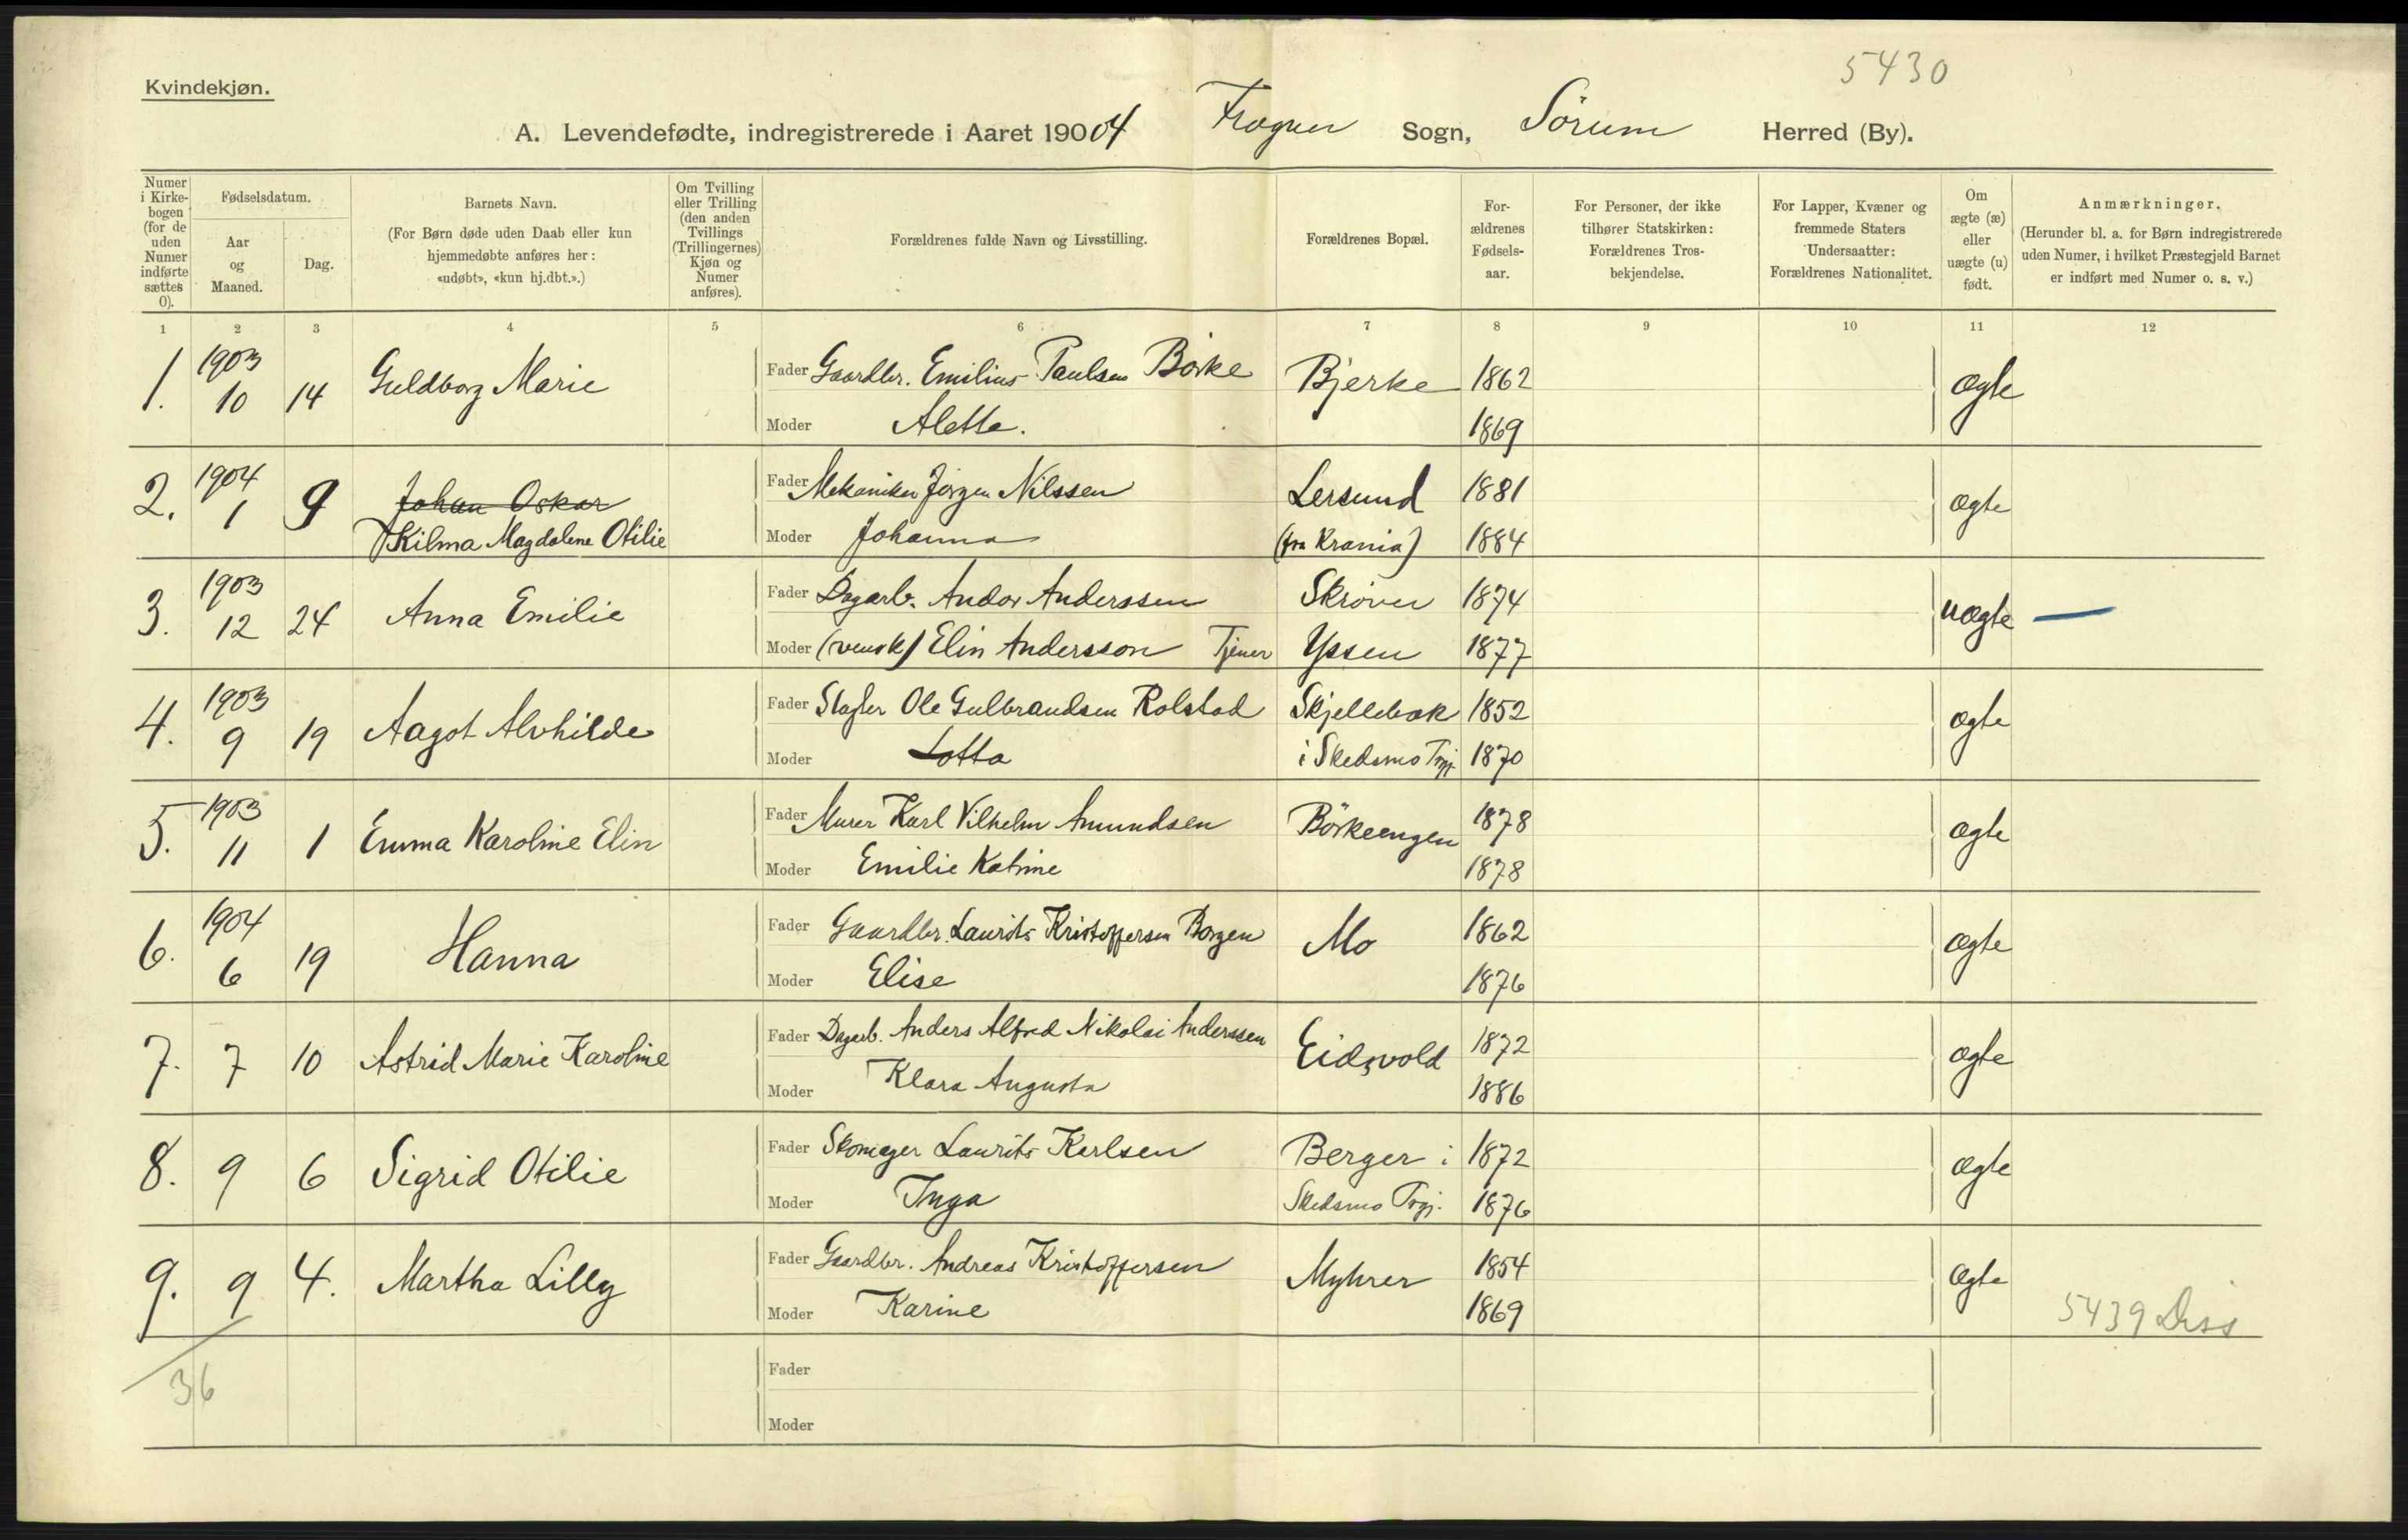 5430
Kvindekjøn.
A. Levendefødte, indregistrerede i Aaret 19004 Frogner Sogn, Sörum Herred (By).
Numer i Kirkebogen (for de uden Numer indførte sættes 0).
Fødselsdatum.
Aar og Maaned.
Dag.
Barnets Navn.
(For Børn døde uden Daab eller kun hjemmedøbte anføres her: «udøbt», «kun hj.dbt.».)
Om Tvilling eller Trilling (den anden Tvillings (Trillingernes) Kjøn og Numer anføres).
Forældrenes fulde Navn og Livsstilling.
Forældrenes Bopæl.
Forældrenes Fødselsaar.
For Personer, der ikke tilhører Statskirken: Forældrenes Trosbekjendelse.
For Lapper, Kvæner og fremmede Staters Undersaatter: Forældrenes Nationalitet.
Om ægte (æ) eller uægte (u) født.
Anmærkninger.
(Herunder bl. a. for Børn indregistrerede uden Numer, i hvilket Præstegjeld Barnet er indført med Numer o. s. v.)
1 2 3 4 5 6 7 8 9 10 11 12
1. 1903 10 14 Guldborg Marie Fader Gaardbr. Emilius Paulsen Börke Bjerke 1862 ægte
Moder Alette. 1869
2. 1904 1 9 Johan Oskar Fader Mekaniker Jörgen Nilssen Lersund 1881 ægte
Kilma Magdalene Otilie Moder Johanna (fra Krania) 1884
3. 1903 12 24 Anna Emilie Fader Dagarb. Andor Anderssen Skröver 1874 uægte —
Moder (svensk) Elin Andersson Tjener Yssen 1877
4. 1903 9 19 Aagot Alvhilde Fader Slagter Ole Gulbrandsen Rolstad Skjellebæk 1852 ægte
Moder Lotta i Skedsmo Prgj. 1870
5. 1903 11 1 Emma Karoline Elin Fader Murer Karl Vilhelm Amundsen Börkeengen 1878 ægte
Moder Emilie Katrine 1878
6. 1904 6 19 Hanna Fader Gaardbr. Laurits Kristoffersen Borgen Mo 1862 ægte
Moder Elise 1876
7. 7 10 Astrid Marie Karoline Fader Dagarb. Anders Alfred Nikolai Anderssen Eidsvold 1872 ægte
Moder Klara Augusta 1886
8. 9 6 Sigrid Otilie Fader Skomager Laurits Karlsen Berger i 1872 ægte
Moder Inga Skedsmo Prgj. 1876
9. 9 4. Martha Lilly Fader Gaardbr. Andreas Kristoffersen Myhrer 1854 ægte
Moder Karine 1869 5439 Diss
36 Fader
Moder